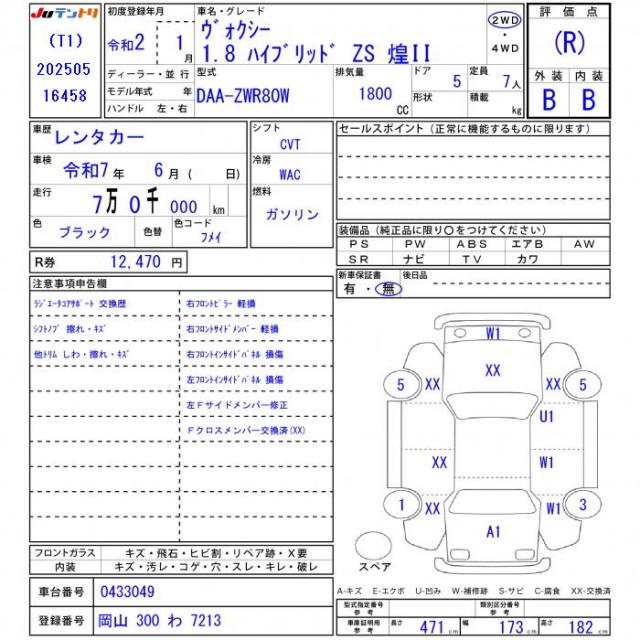 JUテントリ
(T1)
202505
16458
初度登録年月
令和2 1月
ディーラー・並行
モデル年式 年
ハンドル 左・右
車名・グレード
ヴォクシー
1.8 ハイブリッド ZS 煌II
2WD
・
4WD
型式
DAA-ZWR80W
排気量
1800
CC
ドア
5
形状
定員
7人
積載
kg
評価点
(R)
外装 内装
B B
車歴 レンタカー
車検 令和7年 6月( 日)
走行 7万 0千 000 km
色 ブラック
色替
色コード
フメイ
シフト
CVT
冷房
WAC
燃料
ガソリン
R券 12,470 円
セールスポイント(正常に機能するものに限ります)
装備品(純正品に限り○をつけてください)
PS PW ABS エアB AW
SR ナビ TV カワ
新車保証書
有・無
後日品
注意事項申告欄
ラジエータコアサポート 交換歴
シフトノブ 擦れ・キズ
他トリム しわ・擦れ・キズ
右フロントピラー 軽損
右フロントサイドメンバー 軽損
右フロントインサイドパネル 損傷
左フロントインサイドパネル 損傷
左Fサイドメンバー修正
Fクロスメンバー交換済(XX)
W1
5 XX XX XX 5
U1
XX W1
1 XX W1 3
A1
スペア
フロントガラス キズ・飛石・ヒビ割・リペア跡・X要
内装 キズ・汚レ・コゲ・穴・スレ・キレ・破レ
車台番号 0433049
登録番号 岡山 300 わ 7213
A-キズ E-エクボ U-凹み W-補修跡 S-サビ C-腐食 XX-交換済
型式指定番号
参考
類別区分番号
参考
車庫証明用
参考
長さ 471 cm 幅 173 cm 高さ 182 cm